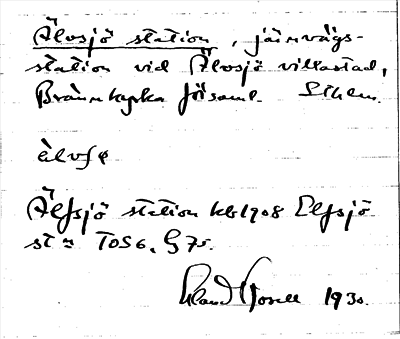 Älvsjö station, järnvägs-
station vid Älvsjö villastad,
Brännkyrka förs​aml. Sthlm.
älvſ
Älfsjö station kb 1908 Elfsjö
stn TOS6. G75.
1930.